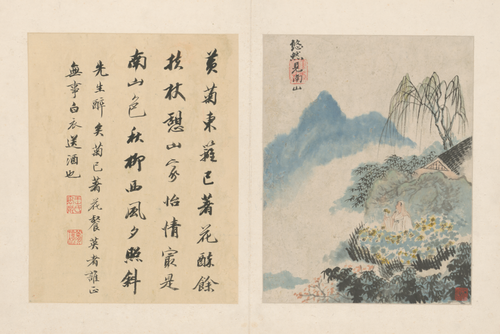 悠然見南山
黄菊東籬已著花酣餘
扶杖憩山家怡情最是
南山色秋柳西風夕照斜
先生醉矣菊已著花餐英者誰正
無事白衣送酒也